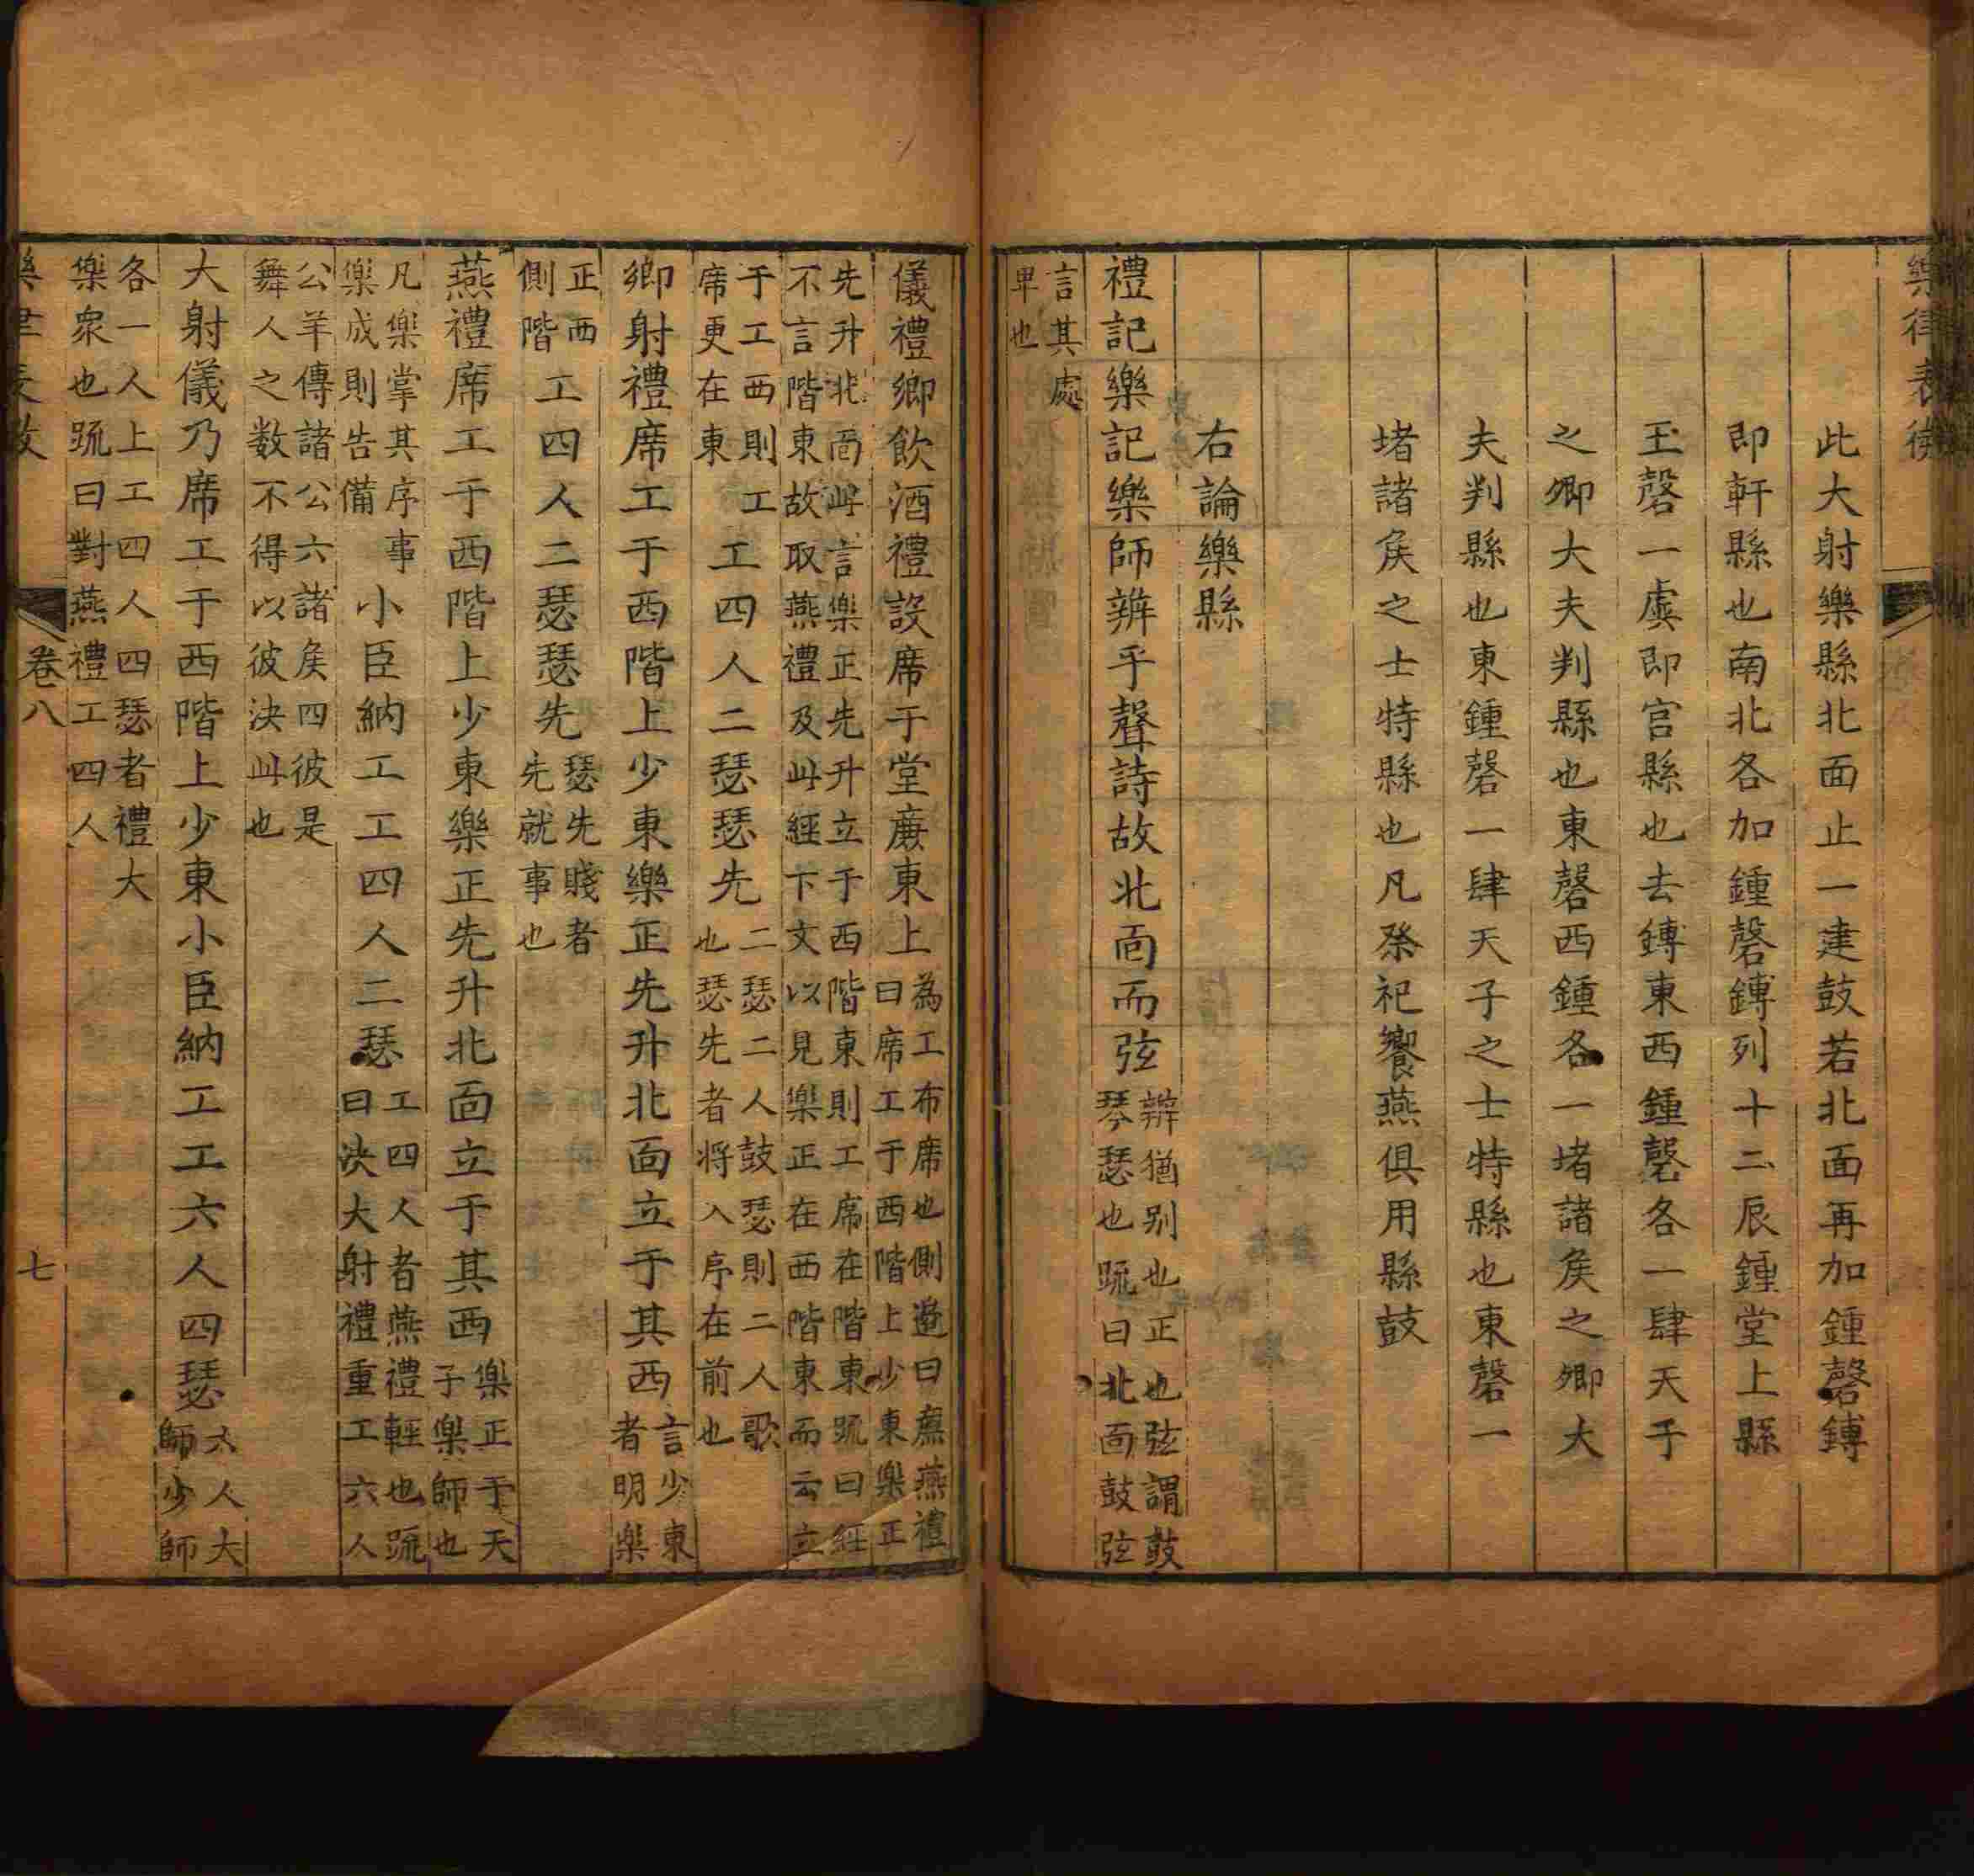 樂律表微
此大射樂縣北面止一建鼓若北面再加鍾磬鏄
即軒縣也南北各加鍾磬鏄列十二辰鍾堂上縣
玉磬一虡即宫縣也去鏄東西鍾磬各一肆天子
之卿大夫判縣也東磬西鍾各一堵諸矦之卿大
夫判縣也東鍾磬一肆天子之士特縣也東磬一
堵諸矦之士特縣也凡祭祀饗燕俱用縣鼓
右論樂縣
禮記樂記樂師辨乎聲詩故北面而弦
辨猶别也正也弦謂鼓
琴瑟也疏曰北面鼓弦
言其處
卑也
儀禮鄉飲酒禮設席于堂廉東上
為工布席也側邉曰廉燕禮
曰席工于西階上少東樂正
先升北面此言樂正先升立于西階東則工席在階東疏曰經
不言階東故取燕禮及此經下文以見樂正在西階東而云立
于工西則工
席更在東
工四人二瑟瑟先
二瑟二人鼓瑟則二人歌
也瑟先者将入序在前也
鄉射禮席工于西階上少東樂正先升北面立于其西
言少東
者明樂
正西
側階
工四人二瑟瑟先
瑟先賤者
先就事也
燕禮席工于西階上少東樂正先升北面立于其西
樂正于天
子樂師也
凡樂掌其序事
樂成則告備
小臣納工工四人二瑟
工四人者燕禮輕也疏
曰決大射禮重工六人
公羊傳諸公六諸矦四彼是
舞人之数不得以彼決此也
大射儀乃席工于西階上少東小臣納工工六人四瑟
六人大
師少師
各一人上工四人四瑟者禮大
樂衆也疏曰對燕禮工四人
卷八
七